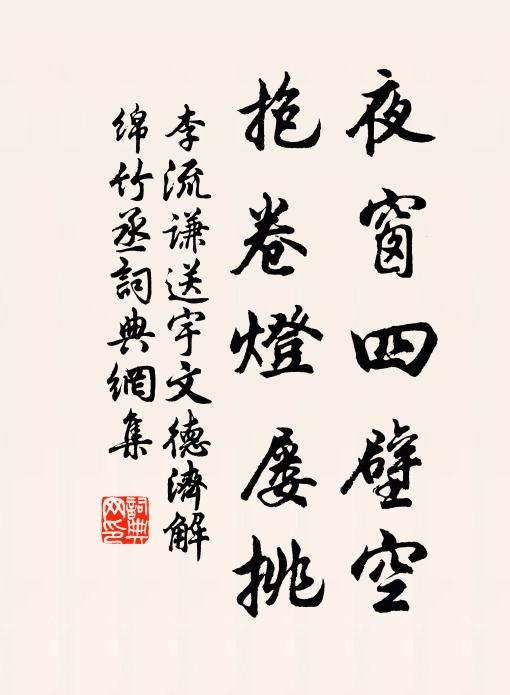 夜窗四壁空
抱卷燈屢挑
李流谦送宇文德濟解
綿竹丞詞典網集
詞典網印